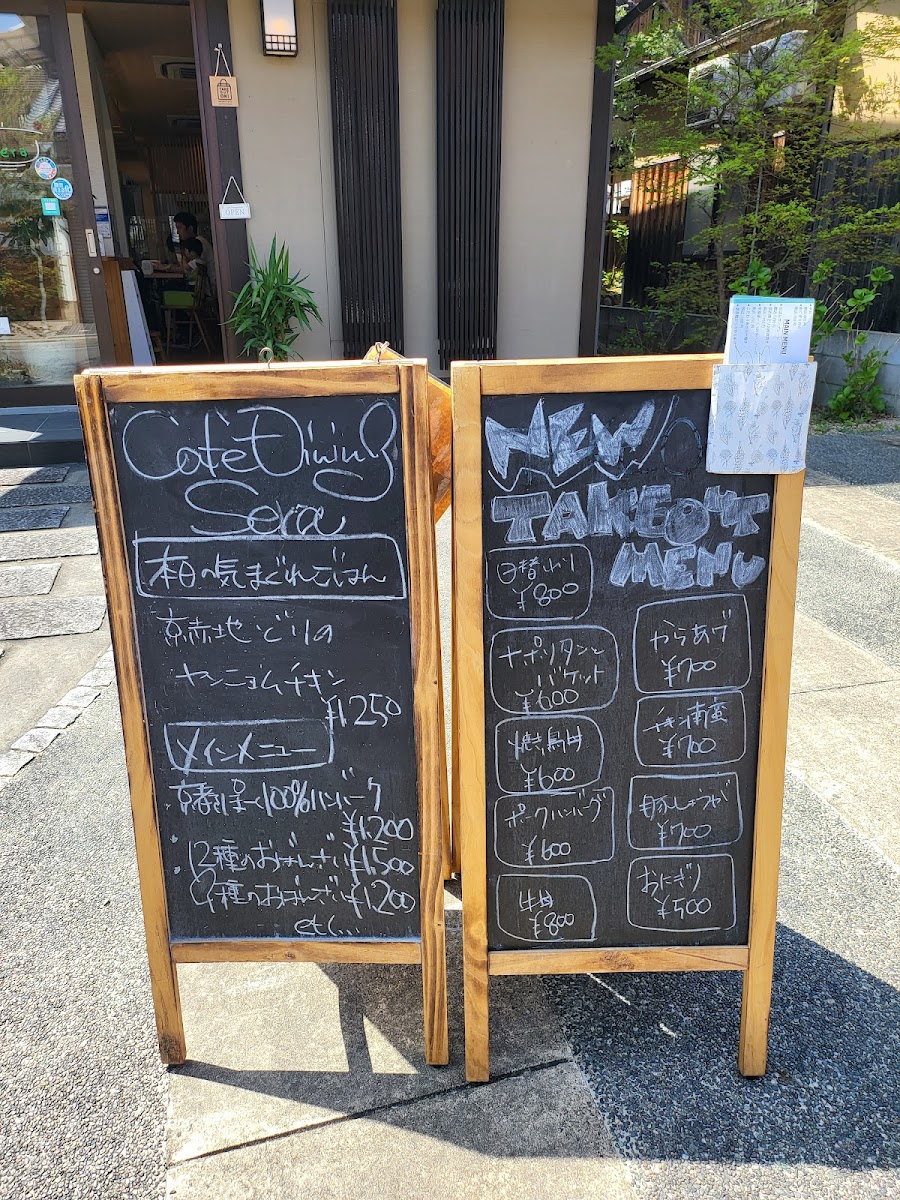 Café Dining
Sera
本日の気まぐれごはん
京赤地どりの
ヤンニョムチキン
¥1.250
メインメニュー
100%ハンバーグ
¥1.200
12種のおばんざい¥1.500
9種のおばんざい¥1.200
etc...
NEW
TAKEOUT
MENU
日替わり
¥800
ナポリタンと
バケット
¥600
焼き鳥丼
¥600
ポークハンバーグ
¥600
牛丼
¥800
からあげ
¥700
チキン南蛮
¥700
豚しょうが
¥700
おにぎり
¥500
MAIN MENU
OPEN